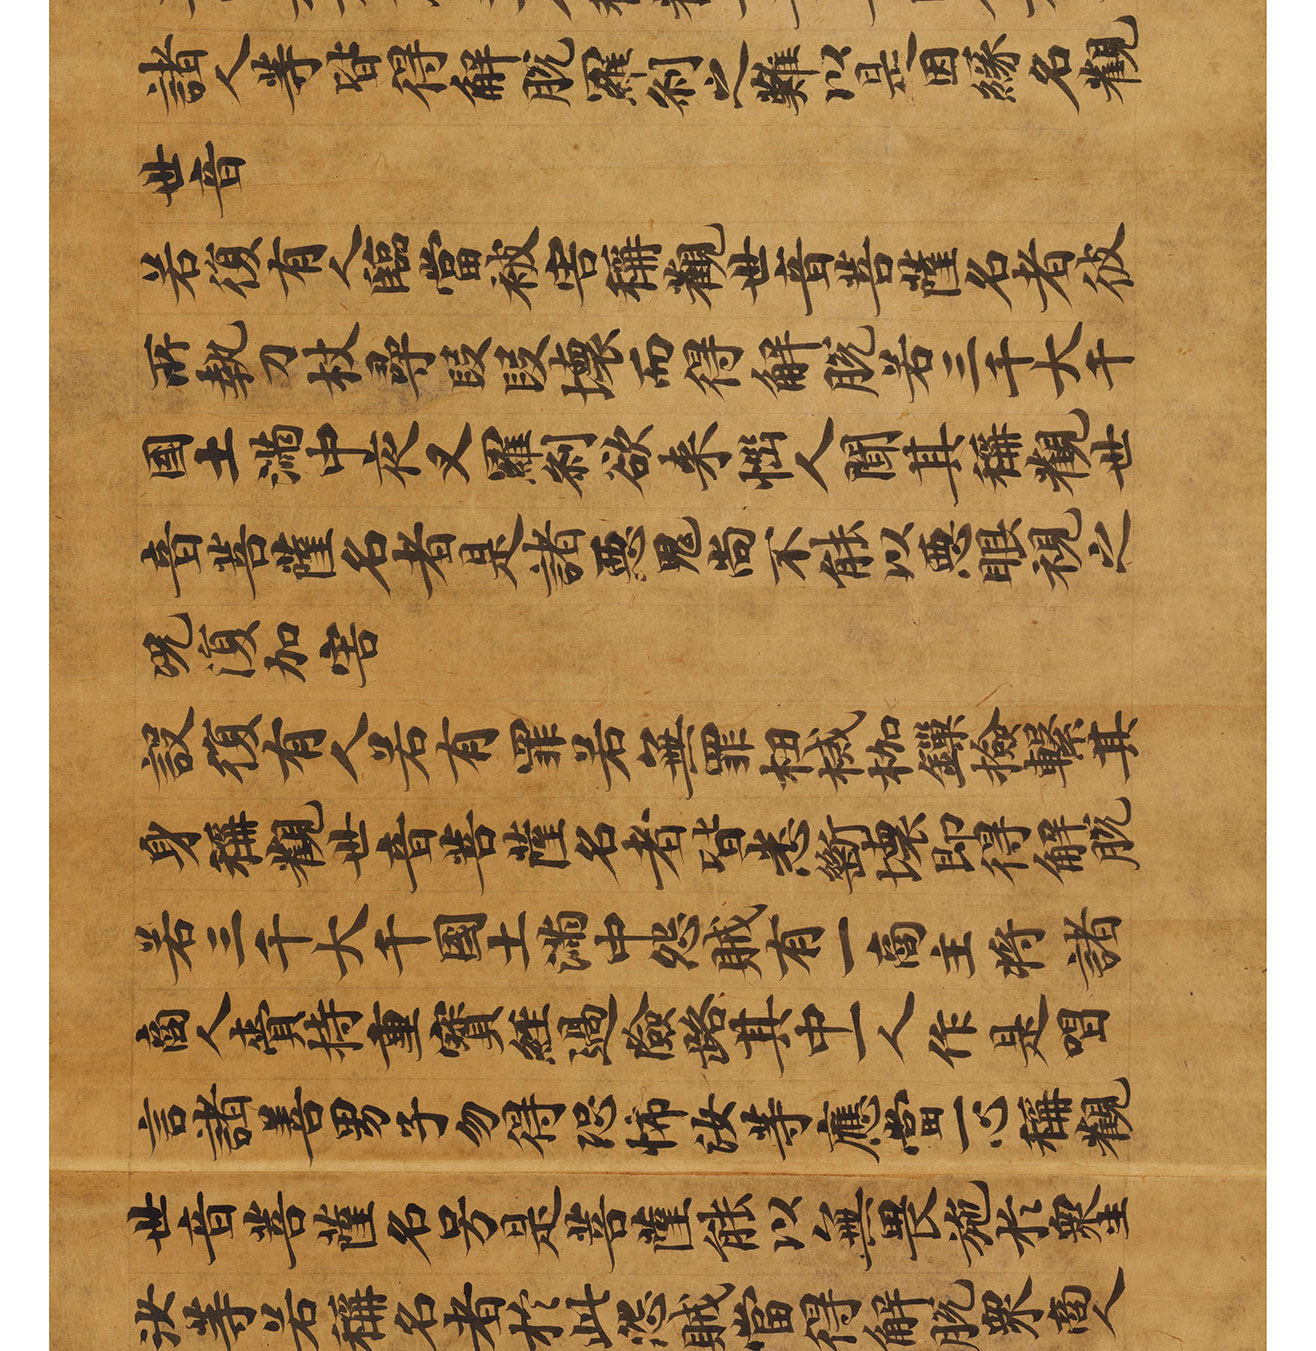 諸人等皆得解脱羅刹之難以是因緣名觀
世音
若復有人臨當被害稱觀世音菩薩名者彼
所執刀杖尋段段壞而得解脱若三千大千
國土滿中夜叉羅刹欲来惱人聞其稱觀世
音菩薩名者是諸惡鬼尚不能以惡眼視之
況復加害
設復有人若有罪若無罪杻械枷鏁撿繫其
身稱觀世音菩薩名者皆悉斷壞即得解脱
若三千大千國土滿中怨賊有一商主將諸
商人賷持重寶經過險路其中一人作是唱
言諸善男子勿得恐怖汝等應當一心稱觀
世音菩薩名号是菩薩能以無畏施於衆生
汝等若稱名者於此怨賊當得解脱衆商人